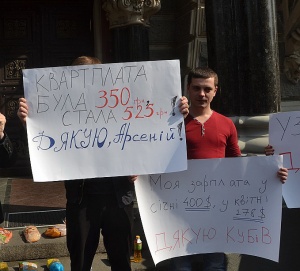 КВАРТПЛАТА
БУЛА 350 грн.
СТАЛА 525 грн.
ДЯКУЮ, Арсеній!
Моя зарплата у
січні 400$, у квітні
276$
ДЯКУЮ КУБІВ
У З
Д